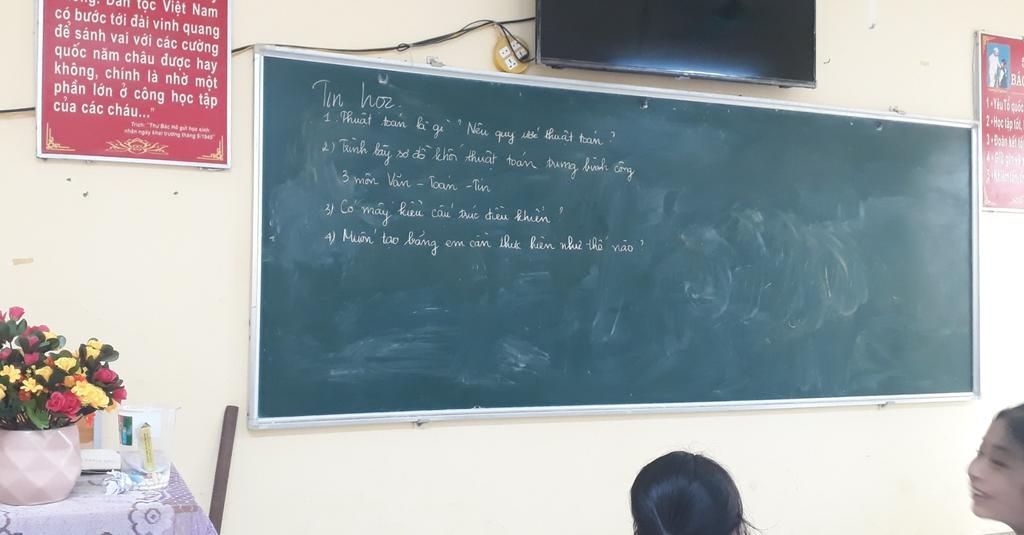 Dân tộc Việt Nam
có bước tới đài vinh quang
để sánh vai với các cường
quốc năm châu được hay
không, chính là nhờ một
phần lớn ở công học tập
của các cháu..."
Trích: "Thư Bác Hồ gửi học sinh
nhân ngày khai trường tháng 9/1945"
Tin học.
1. Thuật toán là gì? Nêu quy ước thuật toán?
2) Trình bày sơ đồ khối thuật toán trung bình cộng
3 môn Văn - Toán - Tin
3) Có mấy kiểu cấu trúc điều khiển?
4) Muốn tạo bảng em cần thực hiện như thế nào?
BÁC
1 - Yêu Tổ quốc
2 - Học tập tốt,
3 - Đoàn kết
4 - Giữ gìn vệ
5 - Khiêm tốn